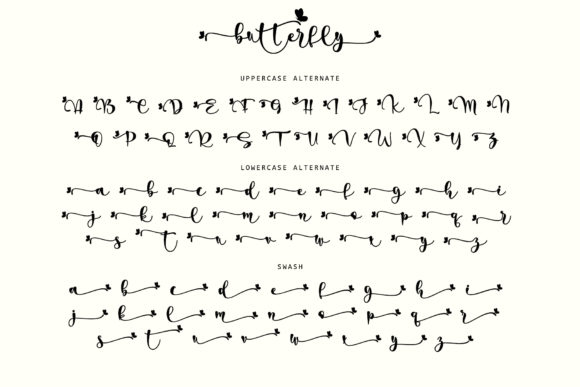 butterfly
UPPERCASE ALTERNATE
A B C D E F G H I J K L M N
O P Q R S T U V W X Y Z
LOWERCASE ALTERNATE
a b c d e f g h i
j k l m n o p q r
s t u v w x y z
SWASH
a b c d e f g h i
j k l m n o p q r
s t u v w x y z